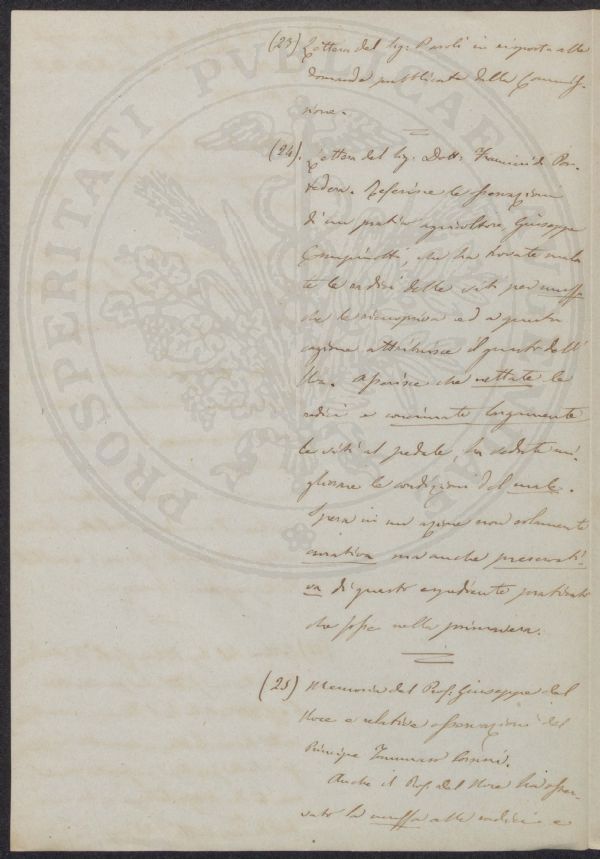 (23) Lettera del Sig: Paroli in risposta alle
domande pubblicate dalla Commis-
sione.
(24). Lettera del Sig: Dott:
Referisce le osservazioni
di un pratico agricoltore, Giuseppe
che ha trovate mala
te le radici delle viti per muffa
che le ricuopriva ed a questa
cagione attribuisce il guasto dell'
Uva. Asserisce che nettate le
radici e concimate largamente
le viti al pedale, ha veduto mi-
gliorare le condizioni del male.
Spera in un azione non solamente
curativa ma anche preservati-
va di questo espediente praticato
che fosse nella primavera.
(25) Memoria del Prof. Giuseppe del
Noce e relative osservazioni del
Principe Tommaso Corsini.
Anche il Prof. del Noce ha osser-
vato la muffa alle radici e
PROSPERITATI PVBLICAE